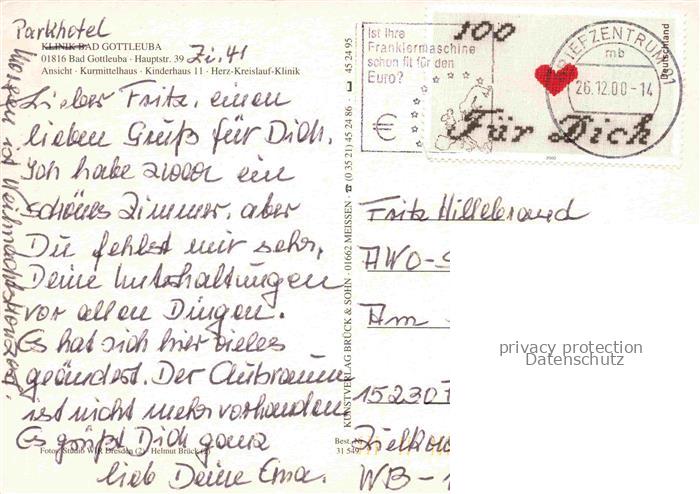 Parkhotel
KLINIK BAD GOTTLEUBA
01816 Bad Gottleuba · Hauptstr. 39
Zi. 41
Ansicht · Kurmittelhaus · Kinderhaus 11 · Herz-Kreislauf-Klinik
Lieber Fritz, einen
lieben Gruß für Dich.
Ich habe zwar ein
schönes Zimmer, aber
Du fehlst mir sehr,
Deine Unterhaltungen
vor allen Dingen.
Es hat sich hier vieles
geändert. Der Clubraum
ist nicht mehr vorhanden
Es grüßt Dich ganz
lieb Deine Erna.
Morgen ist Weihnachtskonzert.
Fotos: Studio WIR Dresden (2) · Helmut Brück (2)
Best.-Nr.
31 549
KUNSTVERLAG BRÜCK & SOHN · 01662 MEISSEN · ☎ (0 35 21) 45 24 86 · 45 24 95
Ist Ihre
Frankiermaschine
schon fit für den
Euro?
€
100
Für Dich
Deutschland
2000
BRIEFZENTRUM 01
mb
26.12.00-14
Fritz Hillebrand
AWO-
Am
15230
WB-
privacy protection
Datenschutz